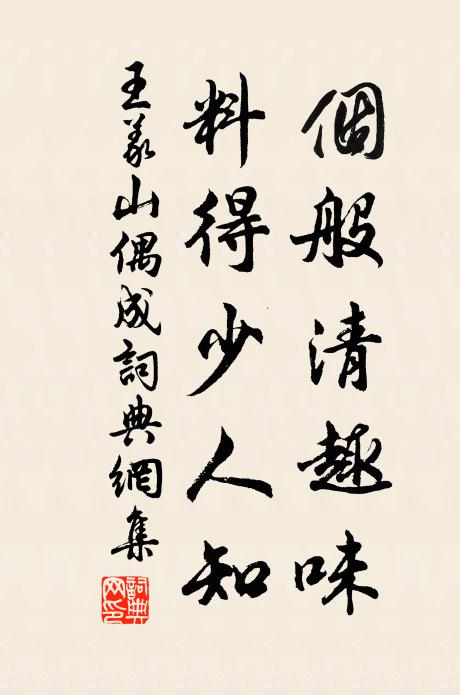 個般清趣味
料得少人知
王義山偶成詞典網集
詞典
網印